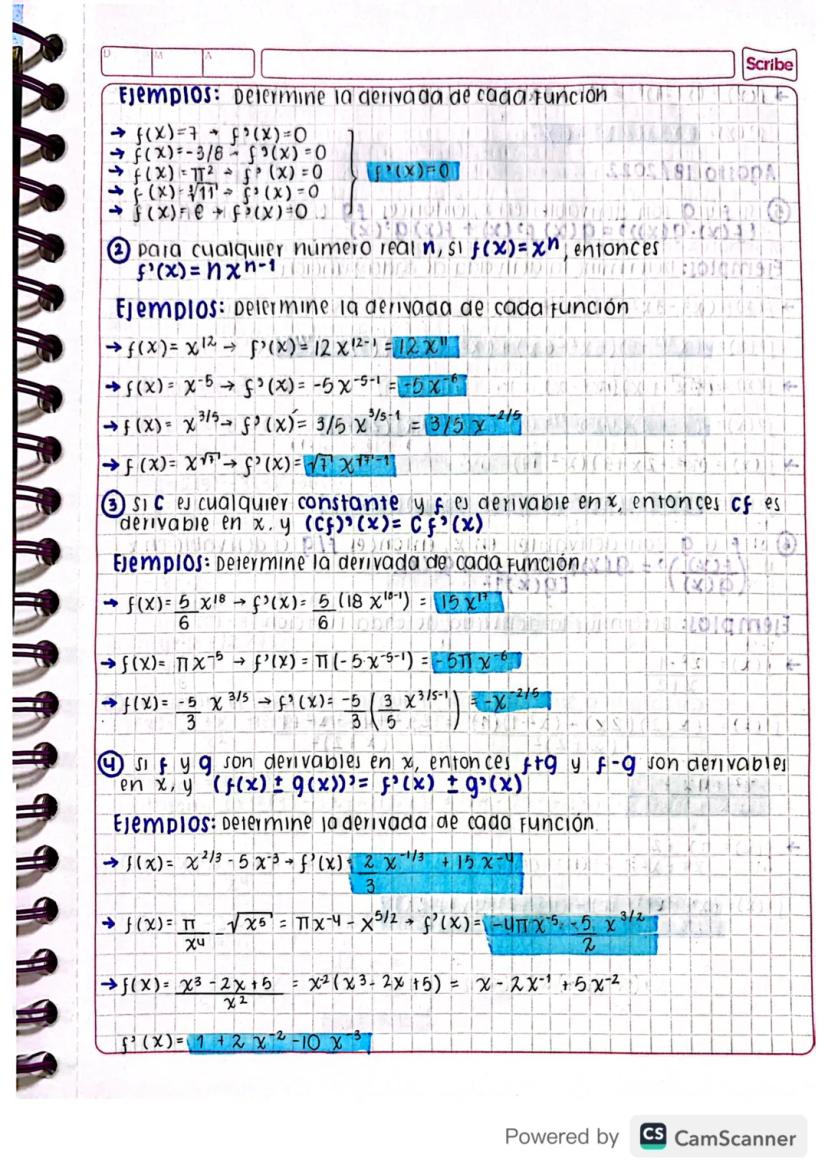 D M A Scribe
Ejemplos: Determine la derivada de cada función
→ f(x)=7 → f'(x)=0
→ f(x)=-3/8 → f'(x)=0
→ f(x)=π² → f'(x)=0
→ f(x)=∛11 → f'(x)=0
→ f(x)=e → f'(x)=0
f'(x)=0
② para cualquier número real n, si f(x)=xⁿ, entonces
f'(x)=nxⁿ⁻¹
Ejemplos: Determine la derivada de cada función
→ f(x)= x^12 → f'(x)= 12 x^(12-1) = 12 x^11
→ f(x)= x^-5 → f'(x)= -5x^(-5-1) = -5x^-6
→ f(x)= x^(3/5) → f'(x)= 3/5 x^(3/5-1) = 3/5 x^(-2/5)
→ f(x)= x^√7 → f'(x)= √7 x^(√7-1)
③ si c es cualquier constante y f es derivable en x, entonces cf es
derivable en x, y (Cf)'(x)= Cf'(x)
Ejemplos: Determine la derivada de cada función
→ f(x)= 5/6 x^18 → f'(x)= 5/6 (18 x^(18-1)) = 15x^17
→ f(x)= πx^-5 → f'(x)= π(-5x^(-5-1)) = -5πx^-6
→ f(x)= -5/3 x^(3/5) → f'(x)= -5/3 (3/5 x^(3/5-1)) = -x^(-2/5)
④ si f y g son derivables en x, entonces f+g y f-g son derivables
en x, y (f(x) ± g(x))'= f'(x) ± g'(x)
Ejemplos: Determine la derivada de cada función
→ f(x)= x^(2/3) - 5x^-3 → f'(x)= 2/3 x^(-1/3) + 15x^-4
→ f(x)= π/x^4 - √x^5 = πx^-4 - x^(5/2) → f'(x)= -4πx^-5 - 5/2 x^(3/2)
→ f(x)= (x³ - 2x + 5)/x² = x^-2(x³ - 2x + 5) = x - 2x^-1 + 5x^-2
f'(x)= 1 + 2x^-2 - 10x^-3
Powered by CS CamScanner